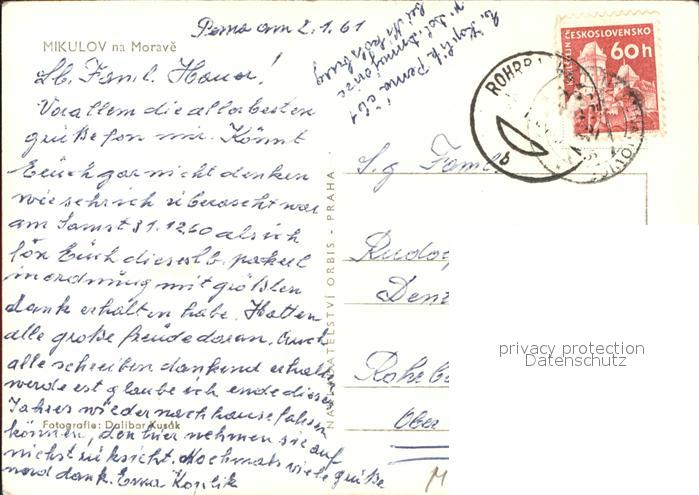 Perna am 2.1.61
MIKULOV na Moravě
Lb. Faml. Hauer!
Vor allem die allerbesten
grüße fon mir. Könnt
Euch gar nicht denken
wie sehr ich überascht war
am Samst 31.12.60 als ich
fon Euch dieses lb. paket
in ordnung mit größten
dank erhalten habe. Hatten
alle große freude daran. Auch
alle schreiben dankend erhalten
werde est glaube ich ende dieses
Jahres wieder nach hause fahren
können, den hier nehmen sie auf
nichts rüksicht. Nochmals viele grüße
und dank. Erna Koplik
Fotografie: Dalibor Kusák
NAKLADATELSTVÍ ORBIS - PRAHA
Koplik Perna č 61
ČESKOSLOVENSKO
60h
ROHRB
b
S.g Faml.
Rudolf
Rohrb
Ober
privacy protection
Datenschutz